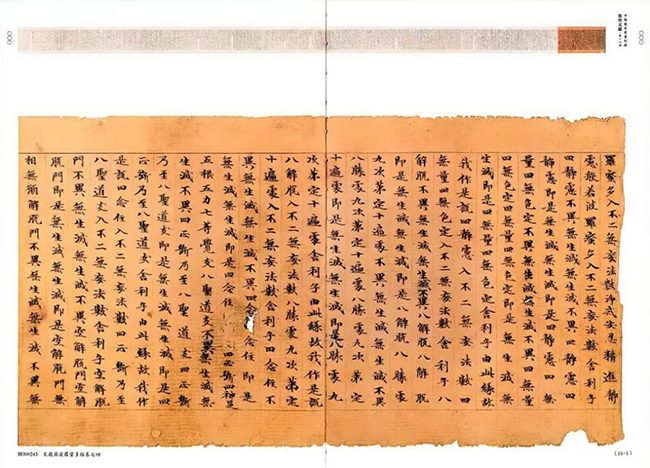 羅蜜多入不二無妄法數淨戒安忍精進靜
慮般若波羅蜜多入不二無妄法數舍利子
四靜慮不異無生滅無生滅不異四靜慮四
靜慮即是無生滅無生滅即是四靜慮四
無量四無色定不異無生滅無生滅不異四無量
四無色定四無量四無色定即是無生滅無
生滅即是四無量四無色定舍利子由此緣故
我作是說四靜慮入不二無妄法數四
無量四無色定入不二無妄法數舍利子八
解脫不異無生滅無生滅不異八解脫八解脫
即是無生滅無生滅即是八解脫八勝處
九次第定十遍處不異無生滅無生滅不異
八勝處九次第定十遍處八勝處九次第定
十遍處即是無生滅無生滅即是八勝處九
次第定十遍處舍利子由此緣故我作是說
八解脫入不二無妄法數八勝處九次第定
十遍處入不二無妄法數舍利子四念住不
異無生滅無生滅不異四念住四念住即是
無生滅無生滅即是四念住四正斷四神足
五根五力七等覺支八聖道支不異無生滅無
生滅不異四正斷乃至八聖道支四正斷
乃至八聖道支即是無生滅無生滅即是四
正斷乃至八聖道支舍利子由此緣故我作
是說四念住入不二無妄法數四正斷乃至
八聖道支入不二無妄法數舍利子空解脫
門不異無生滅無生滅不異空解脫門空解
脫門即是無生滅無生滅即是空解脫門無
相無願解脫門不異無生滅無生滅不異無
BD00243 大般若波羅蜜多經卷七四
(11-1)